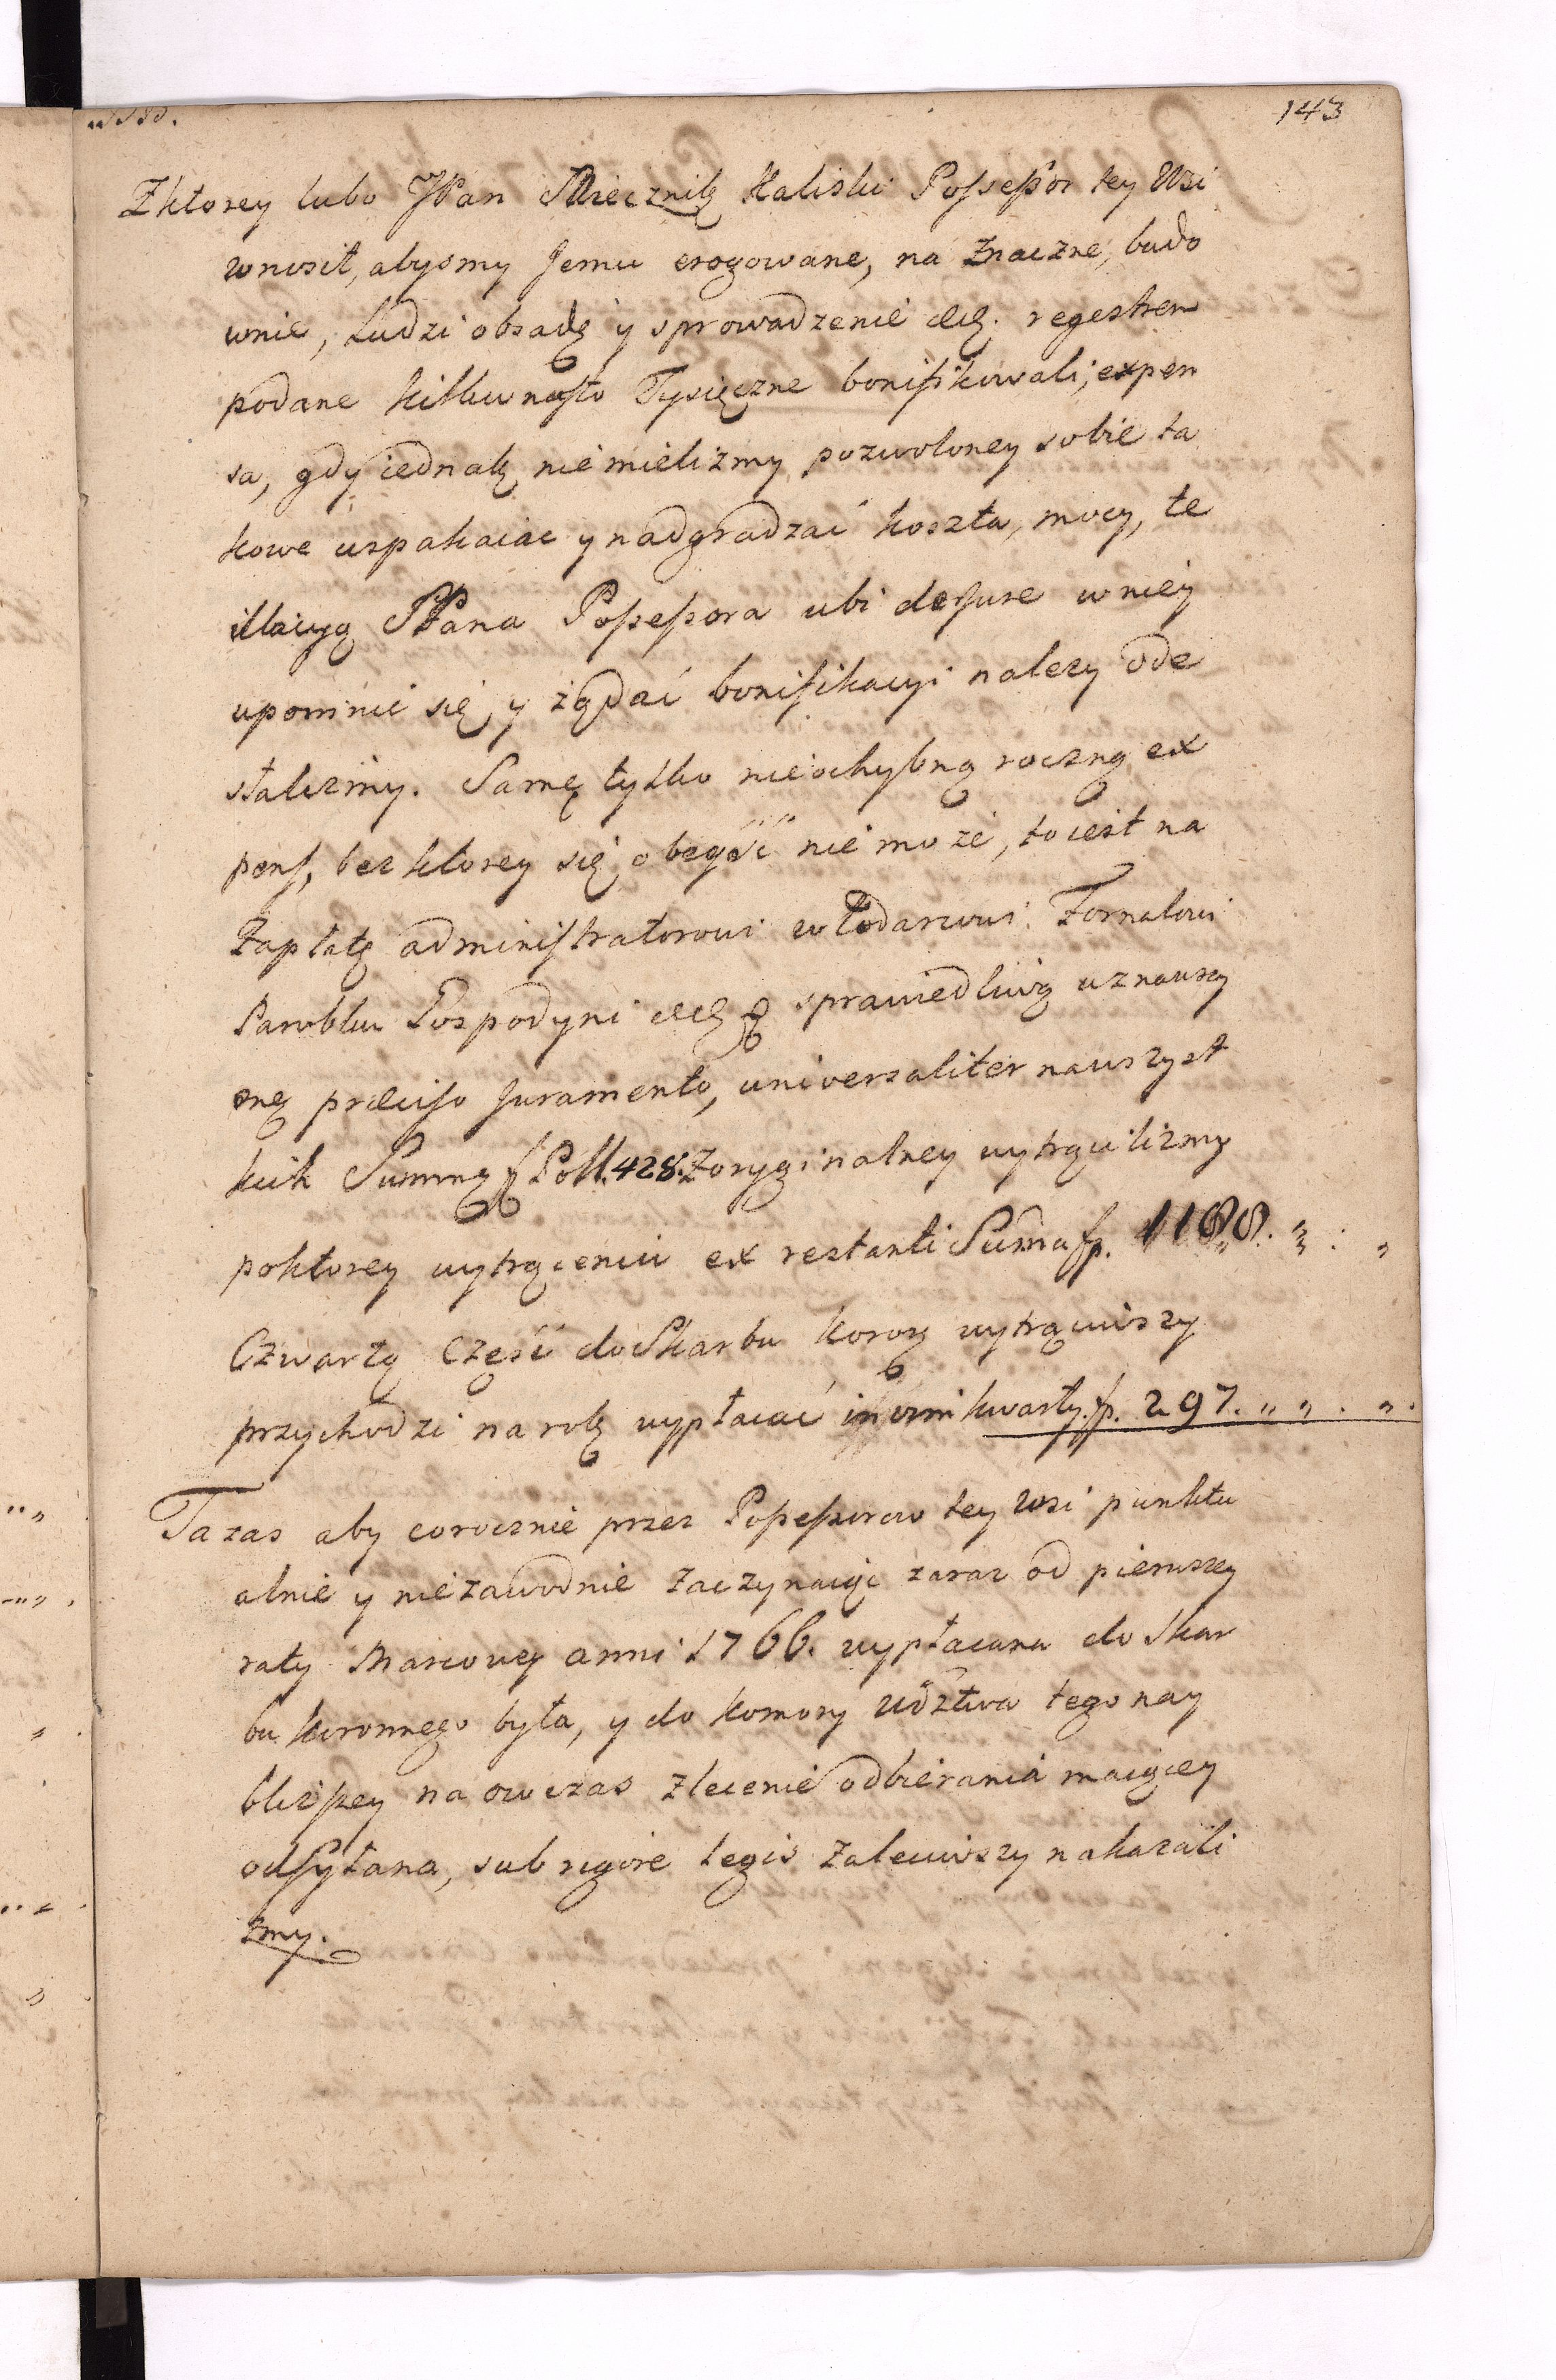 143
Zktorey lubo JPan Miecznik Kaliski Possessor tey Wsi
wnosit, abysmy Jemu erogowane, na znaczne, budo
wnie, Ludzi obsadę y sprowadzenie etc. regestrem
podane kilkunasto Tysięczne bonifikowali, expen
sa, gdy iednak niemielizmy pozwoloney sobie ta
kowe uspakaiac y nadgradzać koszta, mocy, te
illacyą JPana Possessora ubi de Jure wniey
upomnie się, y żądać bonifikacyi nalezy ode
stalizmy. Samę tylko nieochybną roczną ex
pens, bez ktorey się obeyść nie może, toiest na
Zapłatę administratorowi włodarzowi Fornalowi
Parobku Gospodyni etc sprawiedliwą uznawszy
onę præciso Juramento, universaliter nawszyst
kich Summę f Poll. 428. Zoryginalney wytrącilizmy
poktorey wytrąceniu ex restanti Suma fp. 1188.
Czwartą Częsć do Skarbu Koron wytrąciwszy
przychodzi na rok wypłacać kwarty. fp. 297.
Ta zas aby corocznie przez Possessorow tey wsi punktu
alnie y niezawodnie Zaczynaiąc zaraz od pierwszey
raty Marcowey anni 1766. wypłacana do Skar
bu koronnego była, y do Komory Wdztwa tego nay
bliższey na owczas zlecenie odbierania maiącey
odsyłana, sub rigore legis zaleciwszy nakazali
zmy.